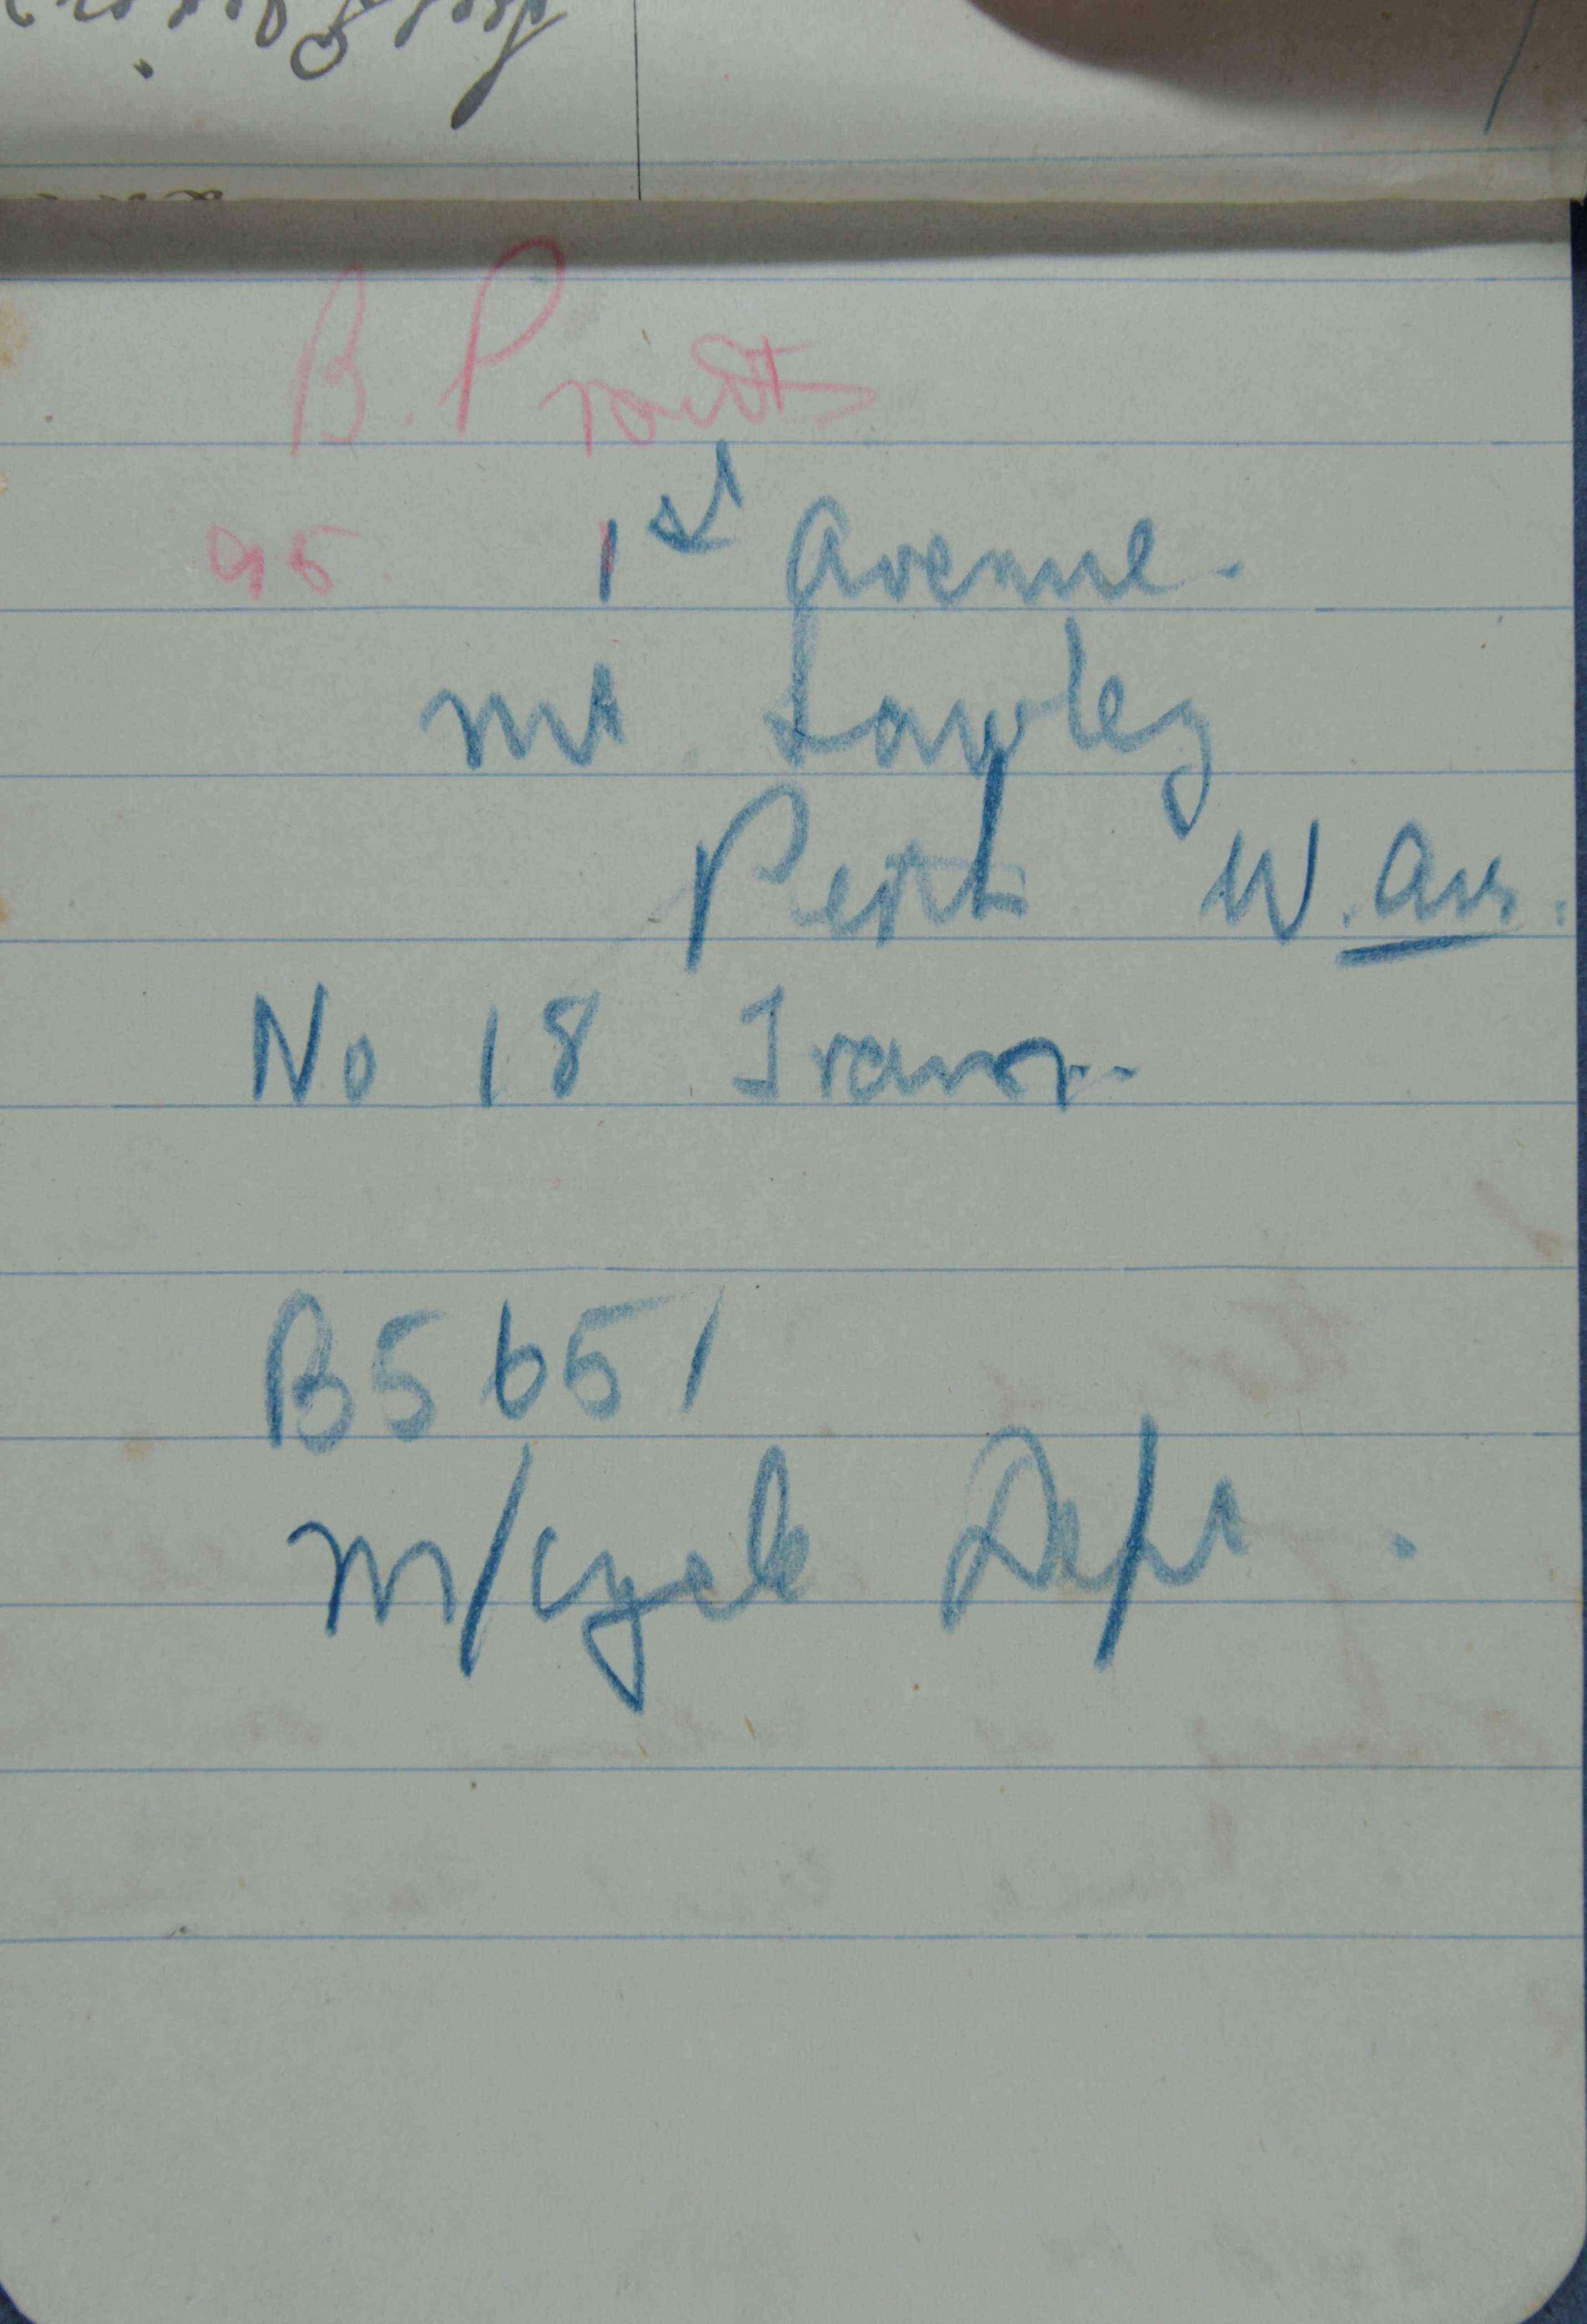 B. Prout
95 1st Avenue.
Mt. Lawley
Perth W. Aus.
No 18 Tram.
B5651
M/cycle Dept.